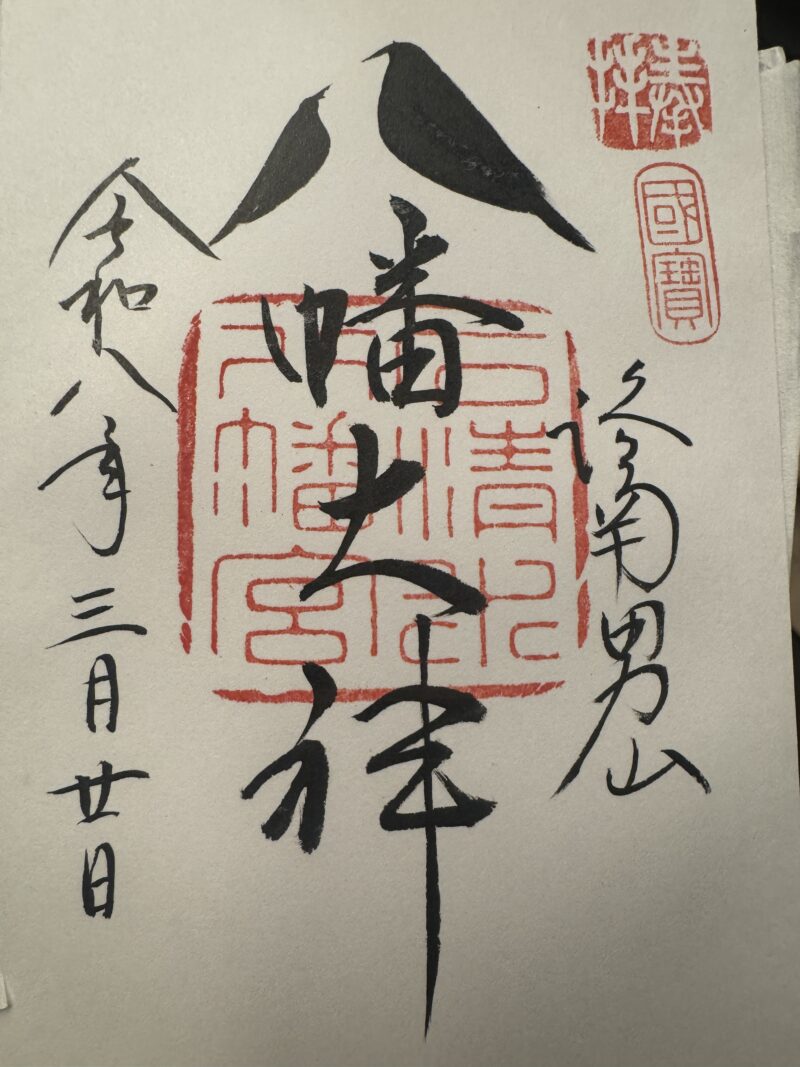 奉拝
國寶
洛南男山
八幡大神
石清水
八幡宮
令和八年三月廿日